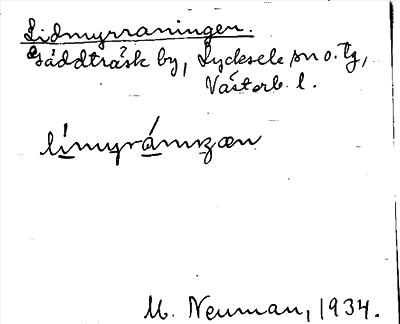 Lidmyrraningen.
Gäddträsk by, Lycksele sn o. tg,
Västerb. l.
límyrámɩzen
M. Neuman, 1934.